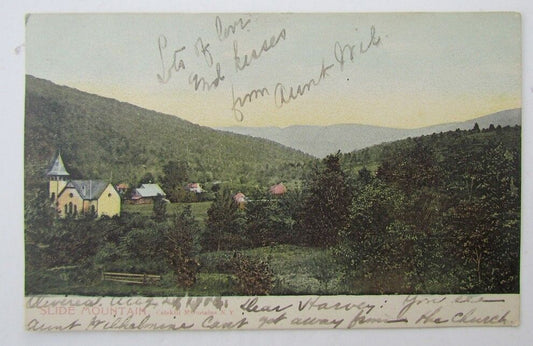 Lots of love
and kisses
from Aunt Wil.
SLIDE MOUNTAIN, Catskill Mountains, N.Y.
Dear Harvey: You see
Aunt Wilhelmine Cant get away from the Church.